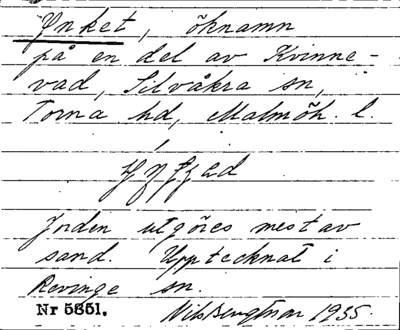 Ynket, öknamn
på en del av Kvinne-
vad, Silvåkra sn,
Torna hd, Malmöh. l.
Jorden utgöres mest av
sand. Upptecknat i
Revinge sn.
Nr 5851. Nils Bengtsson 1935.